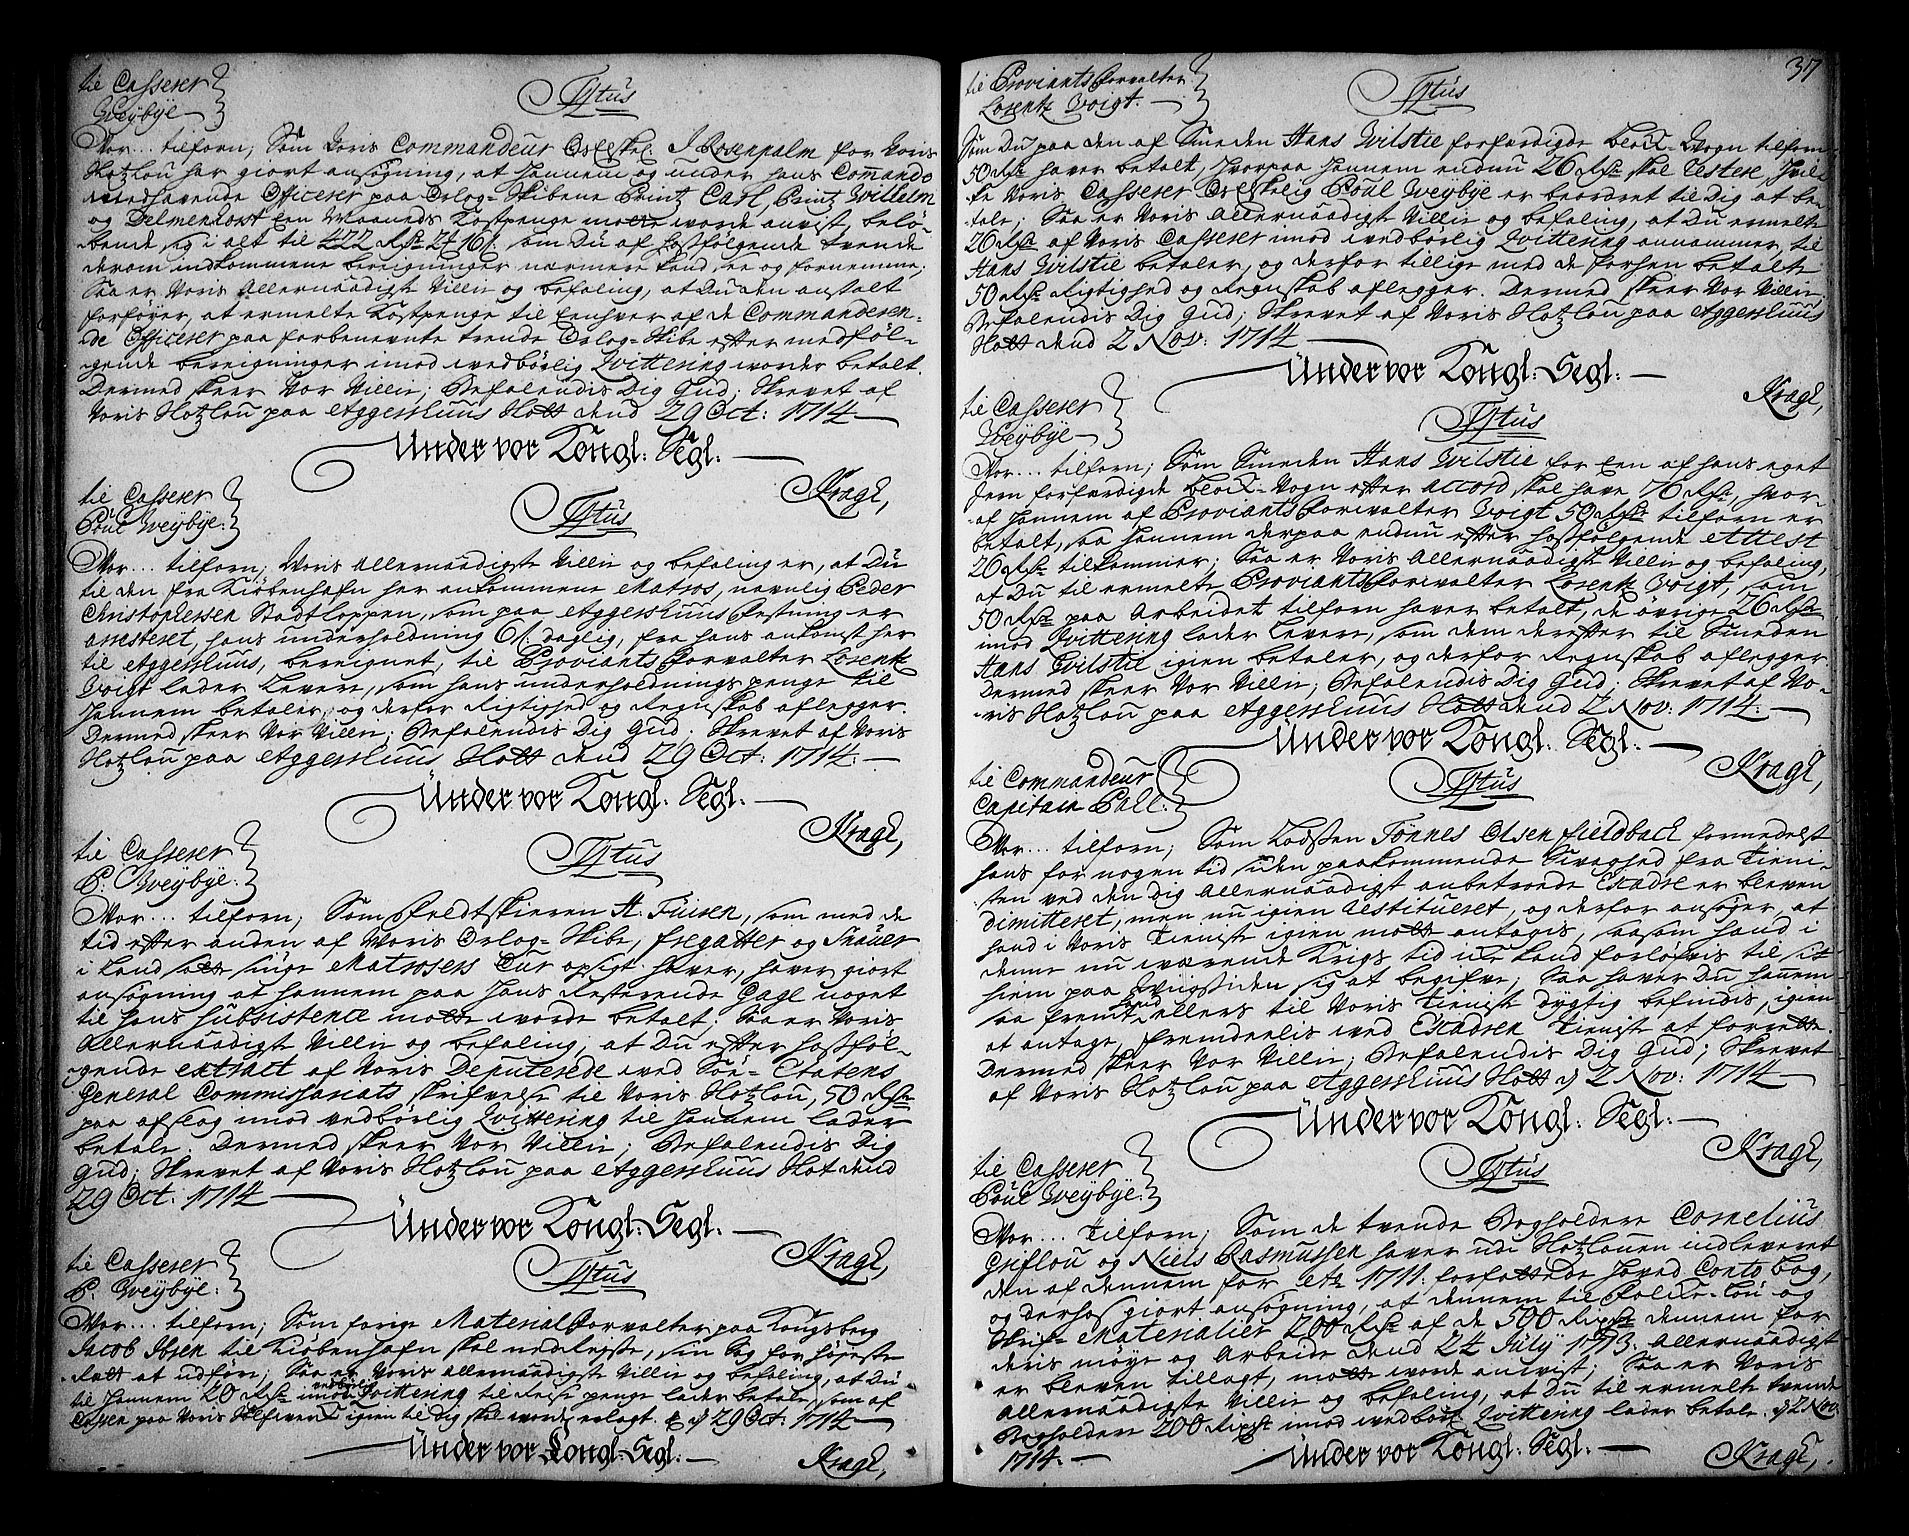 til Casserer
Weybye
Tÿtus
Vor... tilforn; Som Voris Commandeur Os Elskel. J Rosenpalm for Voris
Slotzlou har giort ansøgning, at hannem og under hans Commando
medhavende Officerer paa Orlog-Skibene Printz Carl, Printz Wilhelm
og Delmenhorst Een Maaneds Kostpenge motte worde anvist, belø-
bende sig i alt til 422 Rdr 2 # 16 s. som Du af hosfølgende tvende
derom indkommene bereigninger nærmere hand, see og fornemme;
Saa er Voris Allernaadigste Villie og befaling, at Du den anstalt
forføyer, at ermelte Kostpenge til Eenhver af de Commanderen-
de Officerer paa forbenevnte trende Orlog-Skibe efter medføl-
gende bereigninger imod wedbørlig Qvittering worder betalt.
Dermed skeer Vor Villie; Befalendis Dig Gud; Skrevet af
Voris Slotzlou paa Aggershuus Slott dend 29 Oct: 1714
Under vor Kongl: Segl.
Kragh,
til Casserer
Poul Weybye
Tÿtus
Vor... tilforn; Woris Allernaadigste Villie og befaling er, at Du
til den fra Kiøbenhafn her ankommene Matros, navnlig Peder
Christophersen Stadtloppen, som paa Aggershuus Festning er
arresteret, hans underholdning 6 s. daglig, fra hans ankomst her
til Aggershuus, bereignet, til Proviants Forvalter Lorentz
Voigt lader Levere, som hans underholdnings penge til
hannem betaler, og derfor Rigtighed og Regnskab aflegger.
Dermed skeer Vor Villie; Befalendis Dig Gud; Skrevet af Voris
Slotzlou paa Aggershuus Slott dend 29 Oct: 1714
Under vor Kongl: Segl.
Kragh,
til Casserer
P: Weybye
Tÿtus
Vor... tilforn; Som Feldtskieren H. Fuisen, som med de
tid efter anden af Woris Orlog-Skibe, fregatter og Snauer
i land satte siuge Matrosers Cur opsigt haver, haver giort
ansøgning at hannem paa hans Resterende Gage noget
til hans Subsistence motte worde betalt; Saa er Voris
Allernaadigste Villie og befaling, at Du efter hosføl-
gende extract af Voris Deputerede wed Søe-Etatens
General Commissariats skrifvelse til Voris Slotzlou, 50 Rdr
paa afslag imod vedbørlig Qvittering til hannem lader
betale. Dermed skeer Vor Villie; Befalendis Dig
Gud; Skrevet af Voris Slotzlou paa Aggershuus Slot dend
29 Oct: 1714
Under vor Kongl: Segl.
Kragh,
til Casserer
P: Weybye
Tÿtus
Vor... tilforn; Som forige Material Forvalter paa Kongsberg
Jacob Ibsen til Kiøbenhafn skal nedreyse, sin Sag for høyeste
Rætt at udføre; Saa er Voris Allernaadigste Villie og befaling, at Du
til hannem 20 Rdr imod vedbørlig Qvittering til Reise penge lader betale, som af
Cassen paa Voris igien til Dig skal worde erlagt. dend 29 Oct: 1714
Under vor Kongl: Segl.
Kragh,
37
til Proviants Forvalter
Lorentz Voigt.
Tÿtus
Som Du paa den af Smeden Hans Gvilstie forfærdigde Block-Vogn tilforn
50 Rdr haver betalt, hvorpaa hannem endnu 26 Rdr skal Restere, hvil-
ke Voris Casserer Os Elskelig Poul Weybye er beordret til Dig at be-
tale; Saa er Voris Allernaadigst Villie og befaling, at Du ermelte
26 Rdr af Voris Casserer imod wedbørlig Qvittering annammer, til
Hans Gvilstie betaler, og derfor tillige med de forhen betalte
50 Rdr Rigtighed og Regnskab aflegger. Dermed skeer Vor Villie;
Befalendis Dig Gud; Skrevet af Voris Slotzlou paa Aggershuus
Slott dend 2 Nov: 1714
Under vor Kongl: Segl.
Kragh,
til Casserer
Weybye
Tÿtus
Vor... tilforn; Som Smeden Hans Gvilstie for Een af hans eget
Jern forfærdigde Block-Vogn efter Accord skal have 76 Rdr, hvor-
af hannem af Proviants Forvalter Voigt 50 Rdr tilforn er
betalt, saa hannem derpaa endnu efter hosfølgende Attest
26 Rdr tilkommer; Saa er Voris Allernaadigste Villie og befaling,
at Du til ermelte Proviants Forvalter Lorentz Voigt, som
50 Rdr paa Arbeidet tilforn haver betalt, de øvrige 26 Rdr
imod Qvittering lader Levere, som dem derefter til Smeden
Hans Gvilstie igien betaler, og derfor Regnskab aflegger.
Dermed skeer Vor Villie; Befalendis Dig Gud; Skrevet af Vo-
ris Slotzlou paa Aggershuus Slott dend 2 Nov: 1714.
Under vor Kongl: Segl.
Kragh,
til Commandeur
Capitain Pall:
Tÿtus
Vor... tilforn; Som Lodsen Tønnes Olsen fieldback formedelst
hans for nogen tid siden paakommende Svaghed fra Tieni-
sten ved den Dig Allernaadigst anbetroede Escadre er bleven
dimitteret, men nu igien Restitueret, og derfor ansøger, at
hand i Voris Tieniste igien motte antagis, saasom hand i
denne nu værende Krigs tid icke kand forløfvis til sit
hiem paa Svingsiden sig at begifve; Saa haver Du hannem
saa fremt hand ellers til Voris Tieniste dygtig befindis, igien
at antage, fremdeelis wed Escadren Tieniste at forrette.
Dermed skeer Vor Villie; Befalendis Dig Gud; Skrevet
af Voris Slotzlou paa Aggershuus Slott d 2 Nov: 1714
Under vor Kongl: Segl.
Kragh,
til Casserer
Poul Weybye
Tÿtus
Vor... Tilforn; Som de tvende Bogholdere Cornelius
Griflou og Niels Rasmussen haver udi Slotzlouen indleveret
den af dennem for Ao 1711. forfattede Hoved Conto bog,
og derhos giort ansøgning, at dennem til Folke-løn og
Skrifve Materialier 200 Rdr af de 500 Rixdr dennem for
deris møye og Arbeide dend 24 July 1713. Allernaadigst
er bleven tillagt, motte worde anvist; Saa er Voris
Allernaadigste Villie og befaling, at Du til ermelte tvende
Bogholdere 200 Rixdr imod wedbørl. Qvittering lader betale. d 2 Nov:
1714.
Under vor Kongl: Segl.
Kragh,